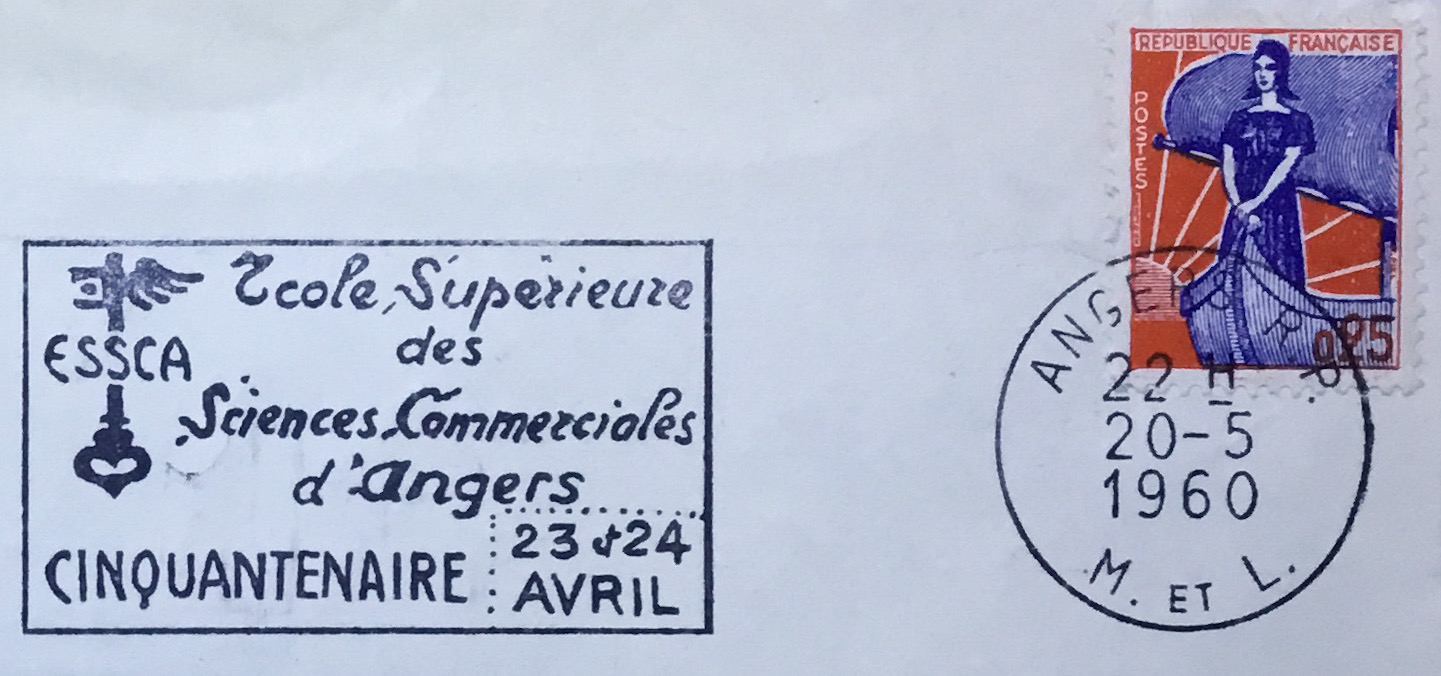 ESSCA
Ecole Supérieure
des
Sciences Commerciales
d'Angers
CINQUANTENAIRE
23 et 24
AVRIL
REPUBLIQUE FRANÇAISE
POSTES
0.25
ANGERS R.P.
22 H
20-5
1960
M. ET L.